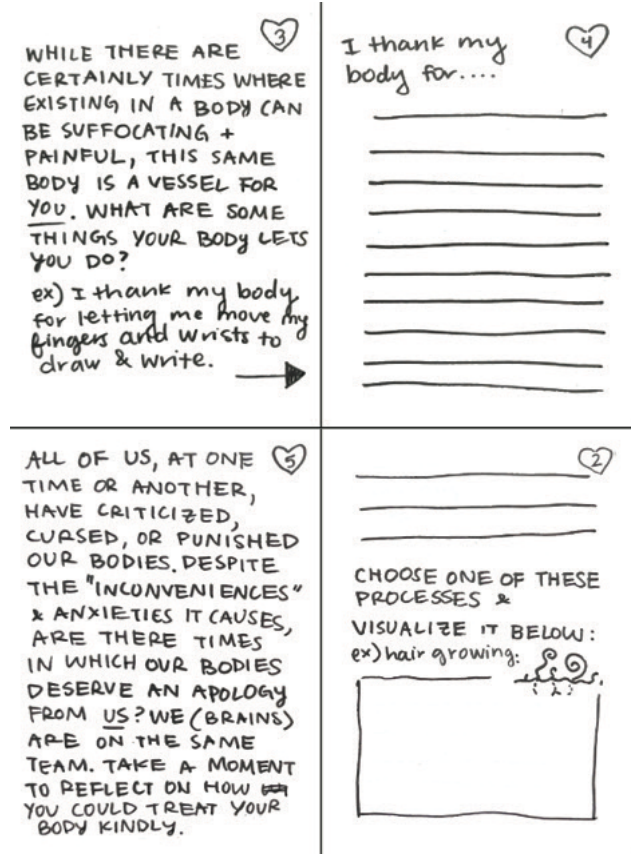 3
WHILE THERE ARE
CERTAINLY TIMES WHERE
EXISTING IN A BODY CAN
BE SUFFOCATING +
PAINFUL, THIS SAME
BODY IS A VESSEL FOR
YOU. WHAT ARE SOME
THINGS YOUR BODY LETS
YOU DO?
ex) I thank my body
for letting me move my
fingers and wrists to
draw & write.
4
I thank my
body for....
5
ALL OF US, AT ONE
TIME OR ANOTHER,
HAVE CRITICIZED,
CURSED, OR PUNISHED
OUR BODIES. DESPITE
THE "INCONVENIENCES"
& ANXIETIES IT CAUSES,
ARE THERE TIMES
IN WHICH OUR BODIES
DESERVE AN APOLOGY
FROM US? WE (BRAINS)
ARE ON THE SAME
TEAM. TAKE A MOMENT
TO REFLECT ON HOW
YOU COULD TREAT YOUR
BODY KINDLY.
2
CHOOSE ONE OF THESE
PROCESSES &
VISUALIZE IT BELOW:
ex) hair growing: